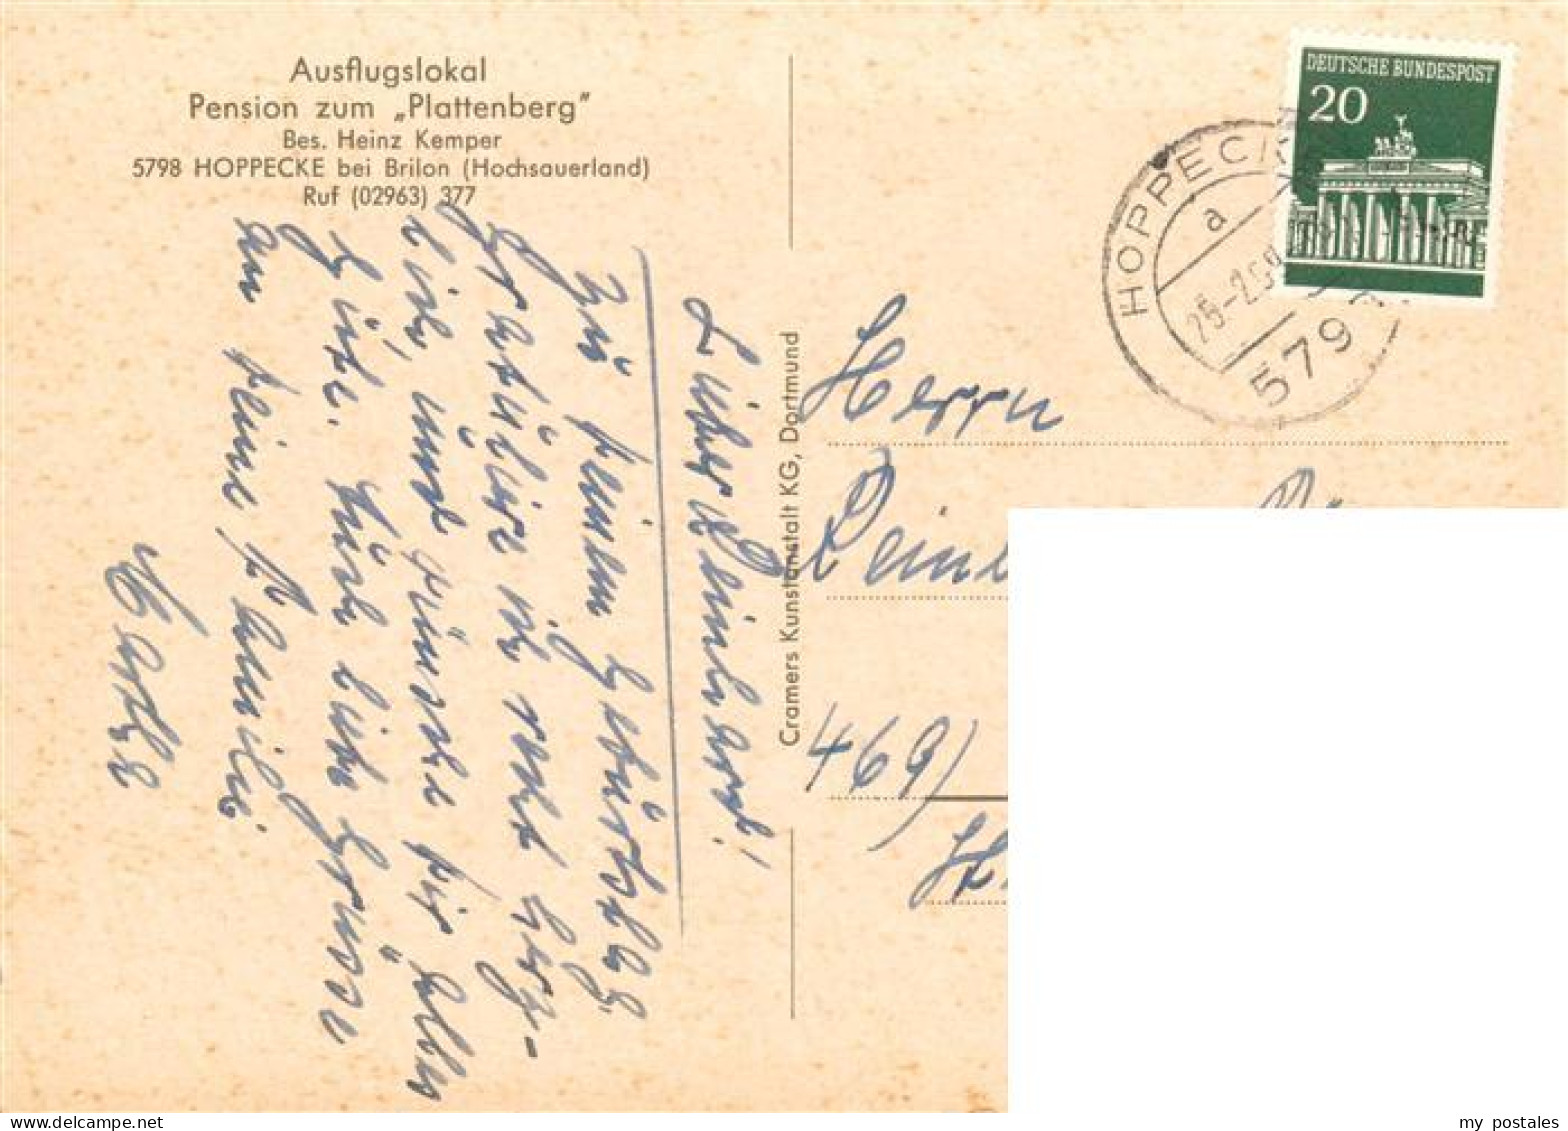 Ausflugslokal
Pension zum „Plattenberg"
Bes. Heinz Kemper
5798 HOPPECKE bei Brilon (Hochsauerland)
Ruf (02963) 377
Lieber Reinhard!
Zu Deinem Geburtstag
gratuliere ich recht herz-
lich, und wünsche Dir alles
Gute. Auch liebe Grüsse
an Deine Familie
Cramers Kunstanstalt KG, Dortmund
DEUTSCHE BUNDESPOST
20
HOPPECKE
a
579
Herrn
469)
my postales